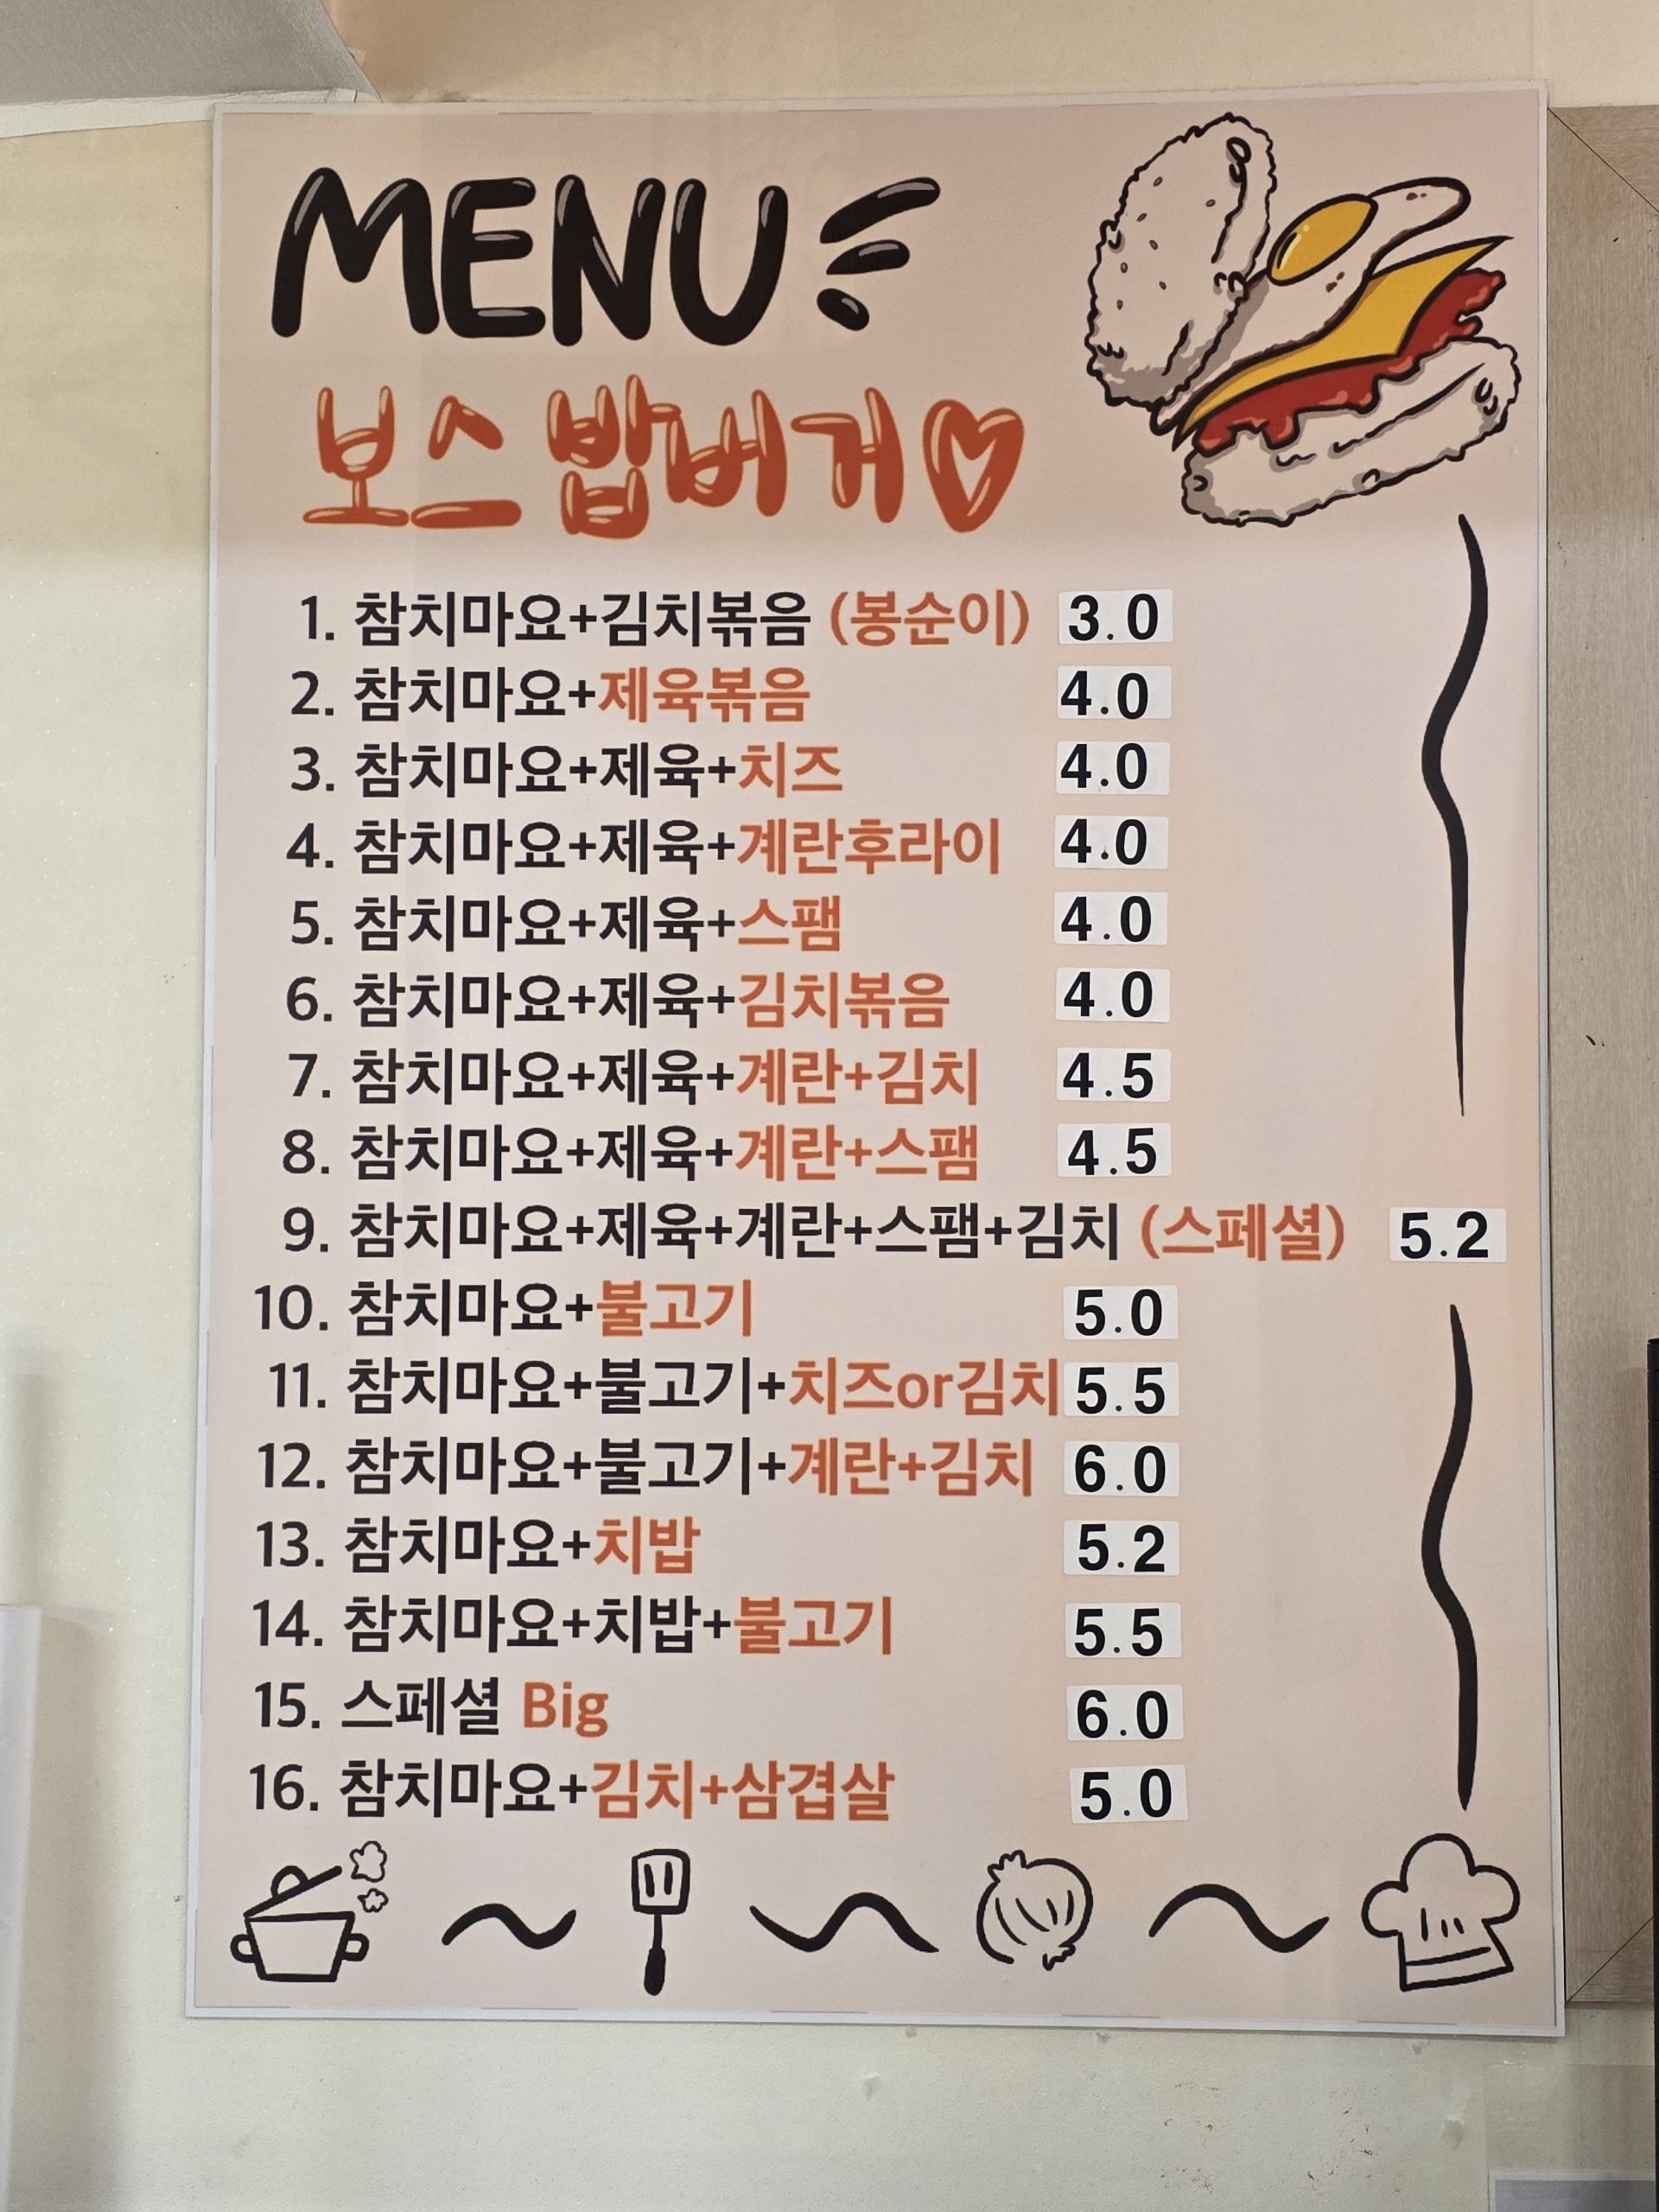 MENU
보스 밥버거♡
1. 참치마요+김치볶음 (봉순이) 3.0
2. 참치마요+제육볶음 4.0
3. 참치마요+제육+치즈 4.0
4. 참치마요+제육+계란후라이 4.0
5. 참치마요+제육+스팸 4.0
6. 참치마요+제육+김치볶음 4.0
7. 참치마요+제육+계란+김치 4.5
8. 참치마요+제육+계란+스팸 4.5
9. 참치마요+제육+계란+스팸+김치 (스페셜) 5.2
10. 참치마요+불고기 5.0
11. 참치마요+불고기+치즈or김치 5.5
12. 참치마요+불고기+계란+김치 6.0
13. 참치마요+치밥 5.2
14. 참치마요+치밥+불고기 5.5
15. 스페셜 Big 6.0
16. 참치마요+김치+삼겹살 5.0